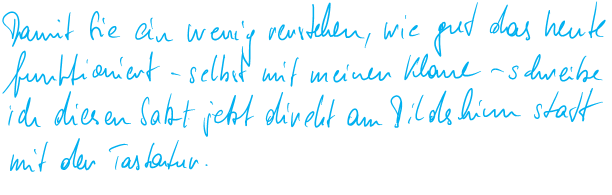 Damit Sie ein wenig verstehen, wie gut das heute
funktioniert - selbst mit meiner Klaue - schreibe
ich diesen Satz jetzt direkt am Bildschirm statt
mit der Tastatur.